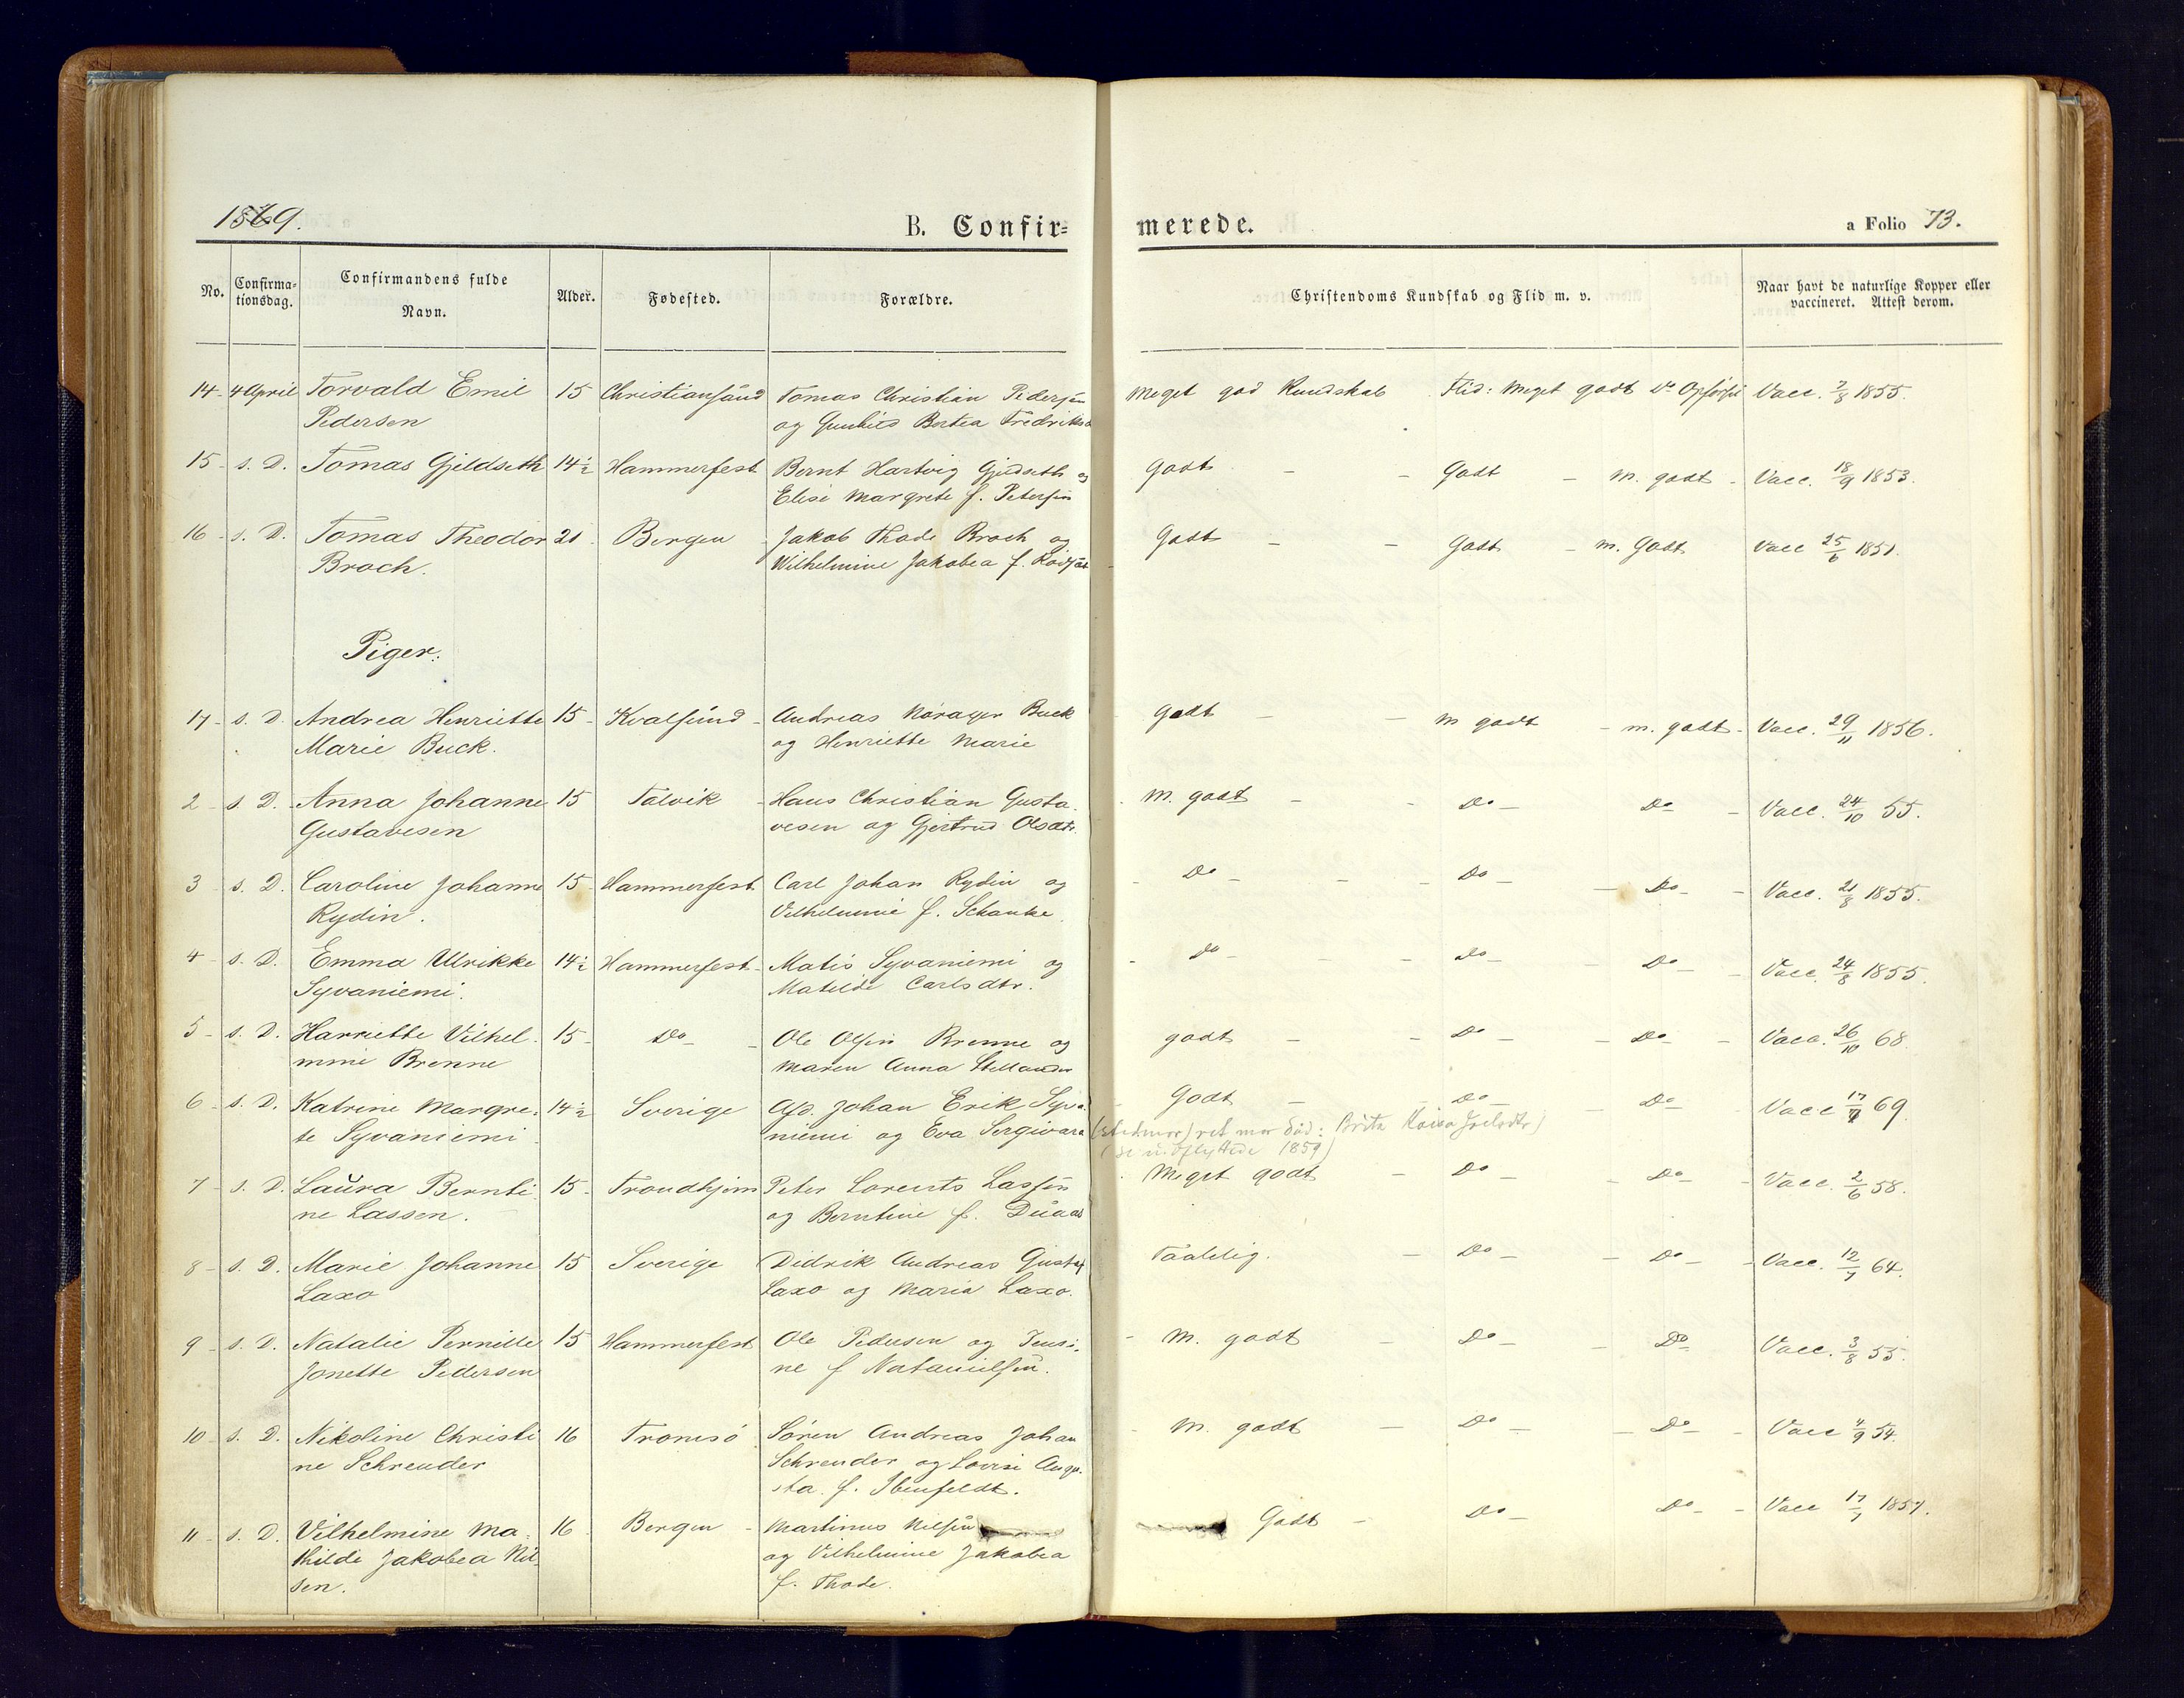 1869.
B. Confir=
merede.
a Folio 73.
No.
Confirma-
tionsdag.
Confirmandens fulde
Navn.
Alder.
Fødested.
Forældre.
Christendoms Kundskab og Flid m. v.
Naar havt de naturlige Kopper eller
vaccineret. Attest derom.
14 4 April Torvald Emil 15 Christiansund Tomas Christian Pedersen Meget god Kundskab Flid: Meget godt Vacc. 7/8 1855.
Pedersen og Gunhild Bertea
15 s. D. Tomas Gjeldseth 14½ Hammerfest Bernt Hartvig Gjeldseth og Godt - - Godt - m. godt - Vacc. 18/9 1853.
Elise Margrete f. Petersen
16 s. D. Tomas Theodor 21 Bergen Jakob Thode Broch og Godt - - Godt - m. Godt Vacc 25/6 1851.
Broch. Wilhelmine Jakobea f.
Piger.
17 s. D. Andrea Henriette 15 Kvalsund Andreas Norager Buck Godt - - m godt - m. godt - Vacc. 29/11 1856.
Marie Buck. og Henriette Marie
2 s. D. Anna Johanne 15 Talvik Hans Christian Gusta- M. godt - - Do - Do - Vacc. 24/10 55.
Gustavesen vesen og Gjertrud Olsdtr.
3 s. D. Caroline Johanne 15 Hammerfest Carl Johan Rydin og - Do - - - Do - - Do - - Vacc. 21/8 1855.
Rydin. Vilhelmine f. Schanke
4 s. D. Emma Ulrikke 14½ Hammerfest Matis Syvaniemi og - Do - - - Do - - Do - - Vacc. 24/8 1855.
Syvaniemi. Matilde Carlsdtr.
5 s. D. Harriette Vilhel- 15 Do Ole Olsen Brenne og godt - - Do - - Do - - Vacc. 26/10 68.
mine Brenne Maren Anna Stellander
6 s. D. Katrine Margre- 14½ Sverige Afd. Johan Erik Syva- Godt - Do - - Do - Vacc 17/4 69.
te Syvaniemi niemi og Eva Sergivara (stedmor) ret mor død: Brita Kaisa
udflyttede 1859)
7 s. D. Laura Bernti- 15 Trondhjem Peter Lorents Lassen Meget godt - Do - - Do - - Vacc. 2/6 58.
ne Lassen. og Berntine f.
8 s. D. Marie Johanne 15 Sverige Didrik Andreas Gustaf Taalelig. - Do - - Do - - Vacc. 12/7 64.
Laxo Laxo og Maria Laxo.
9 s. D. Natalie Pernille 15 Hammerfest Ole Pedersen og Jensi- - M. godt - Do - - Do - Vacc. 3/8 55.
Jonette Pedersen ne f Natanielsen.
10 s. D. Nikoline Christi 16 Tromsö Sören Andreas Johan - M. godt - Do - - Do - - Vacc 4/9 54.
ne Schreuder Schreuder og Lovise Augu-
sta f. Ibenfeldt.
11 s. D. Vilhelmine Ma- 16 Bergen - Martinus Nilsen Godt - Do - Do - - Vacc 17/7 1857.
thilde Jakobea Nil- og Vilhelmine Jakobea
sen. f. Thode.